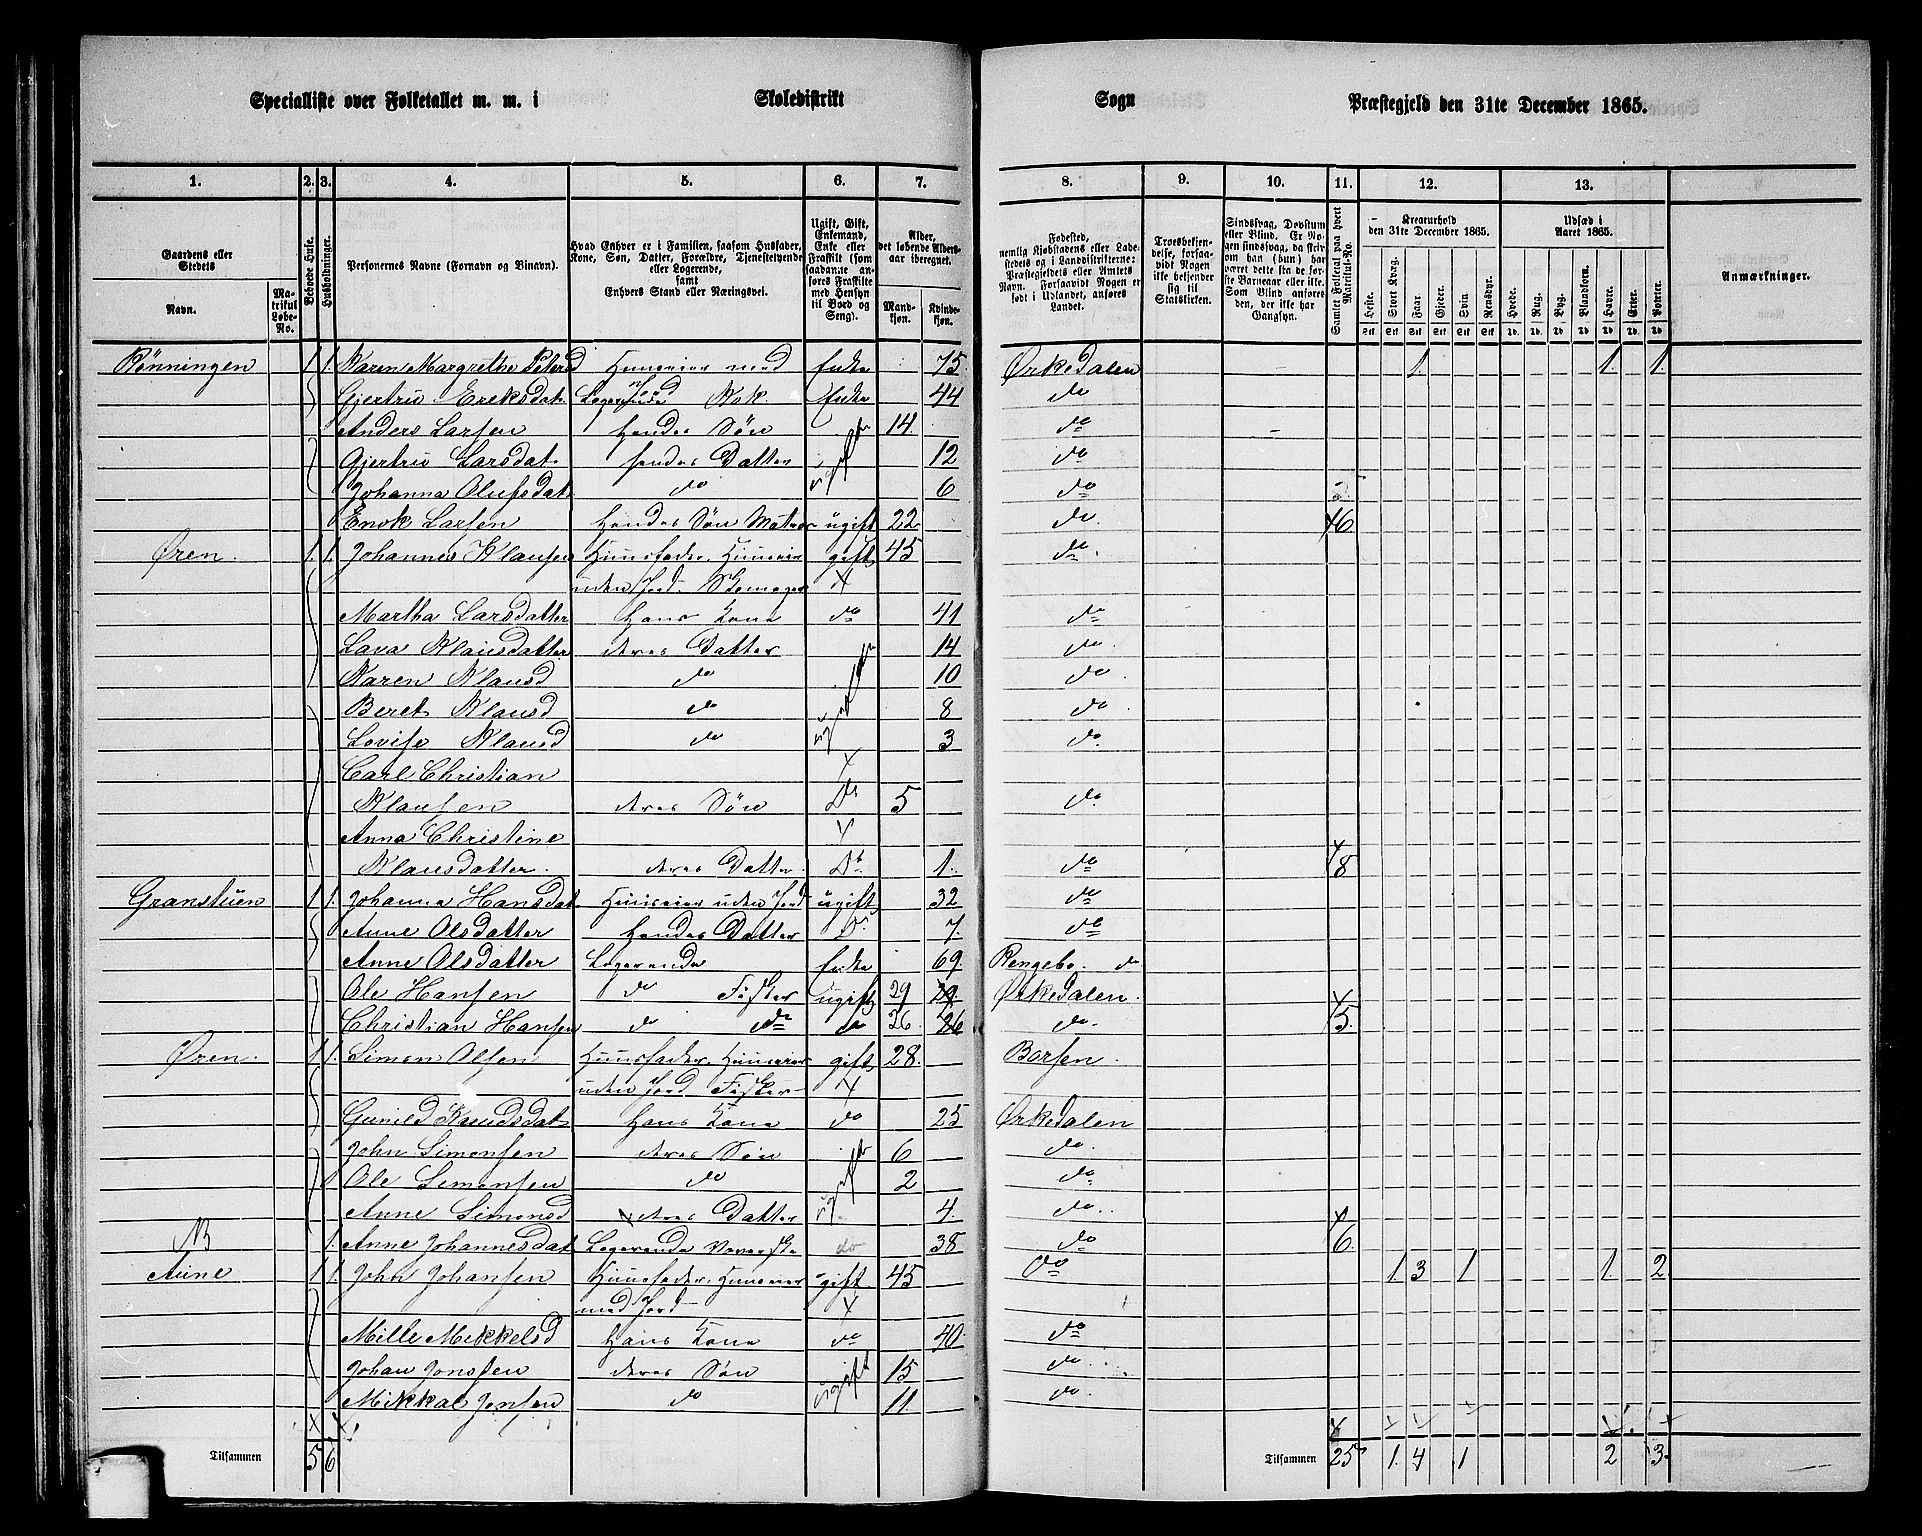 Specialliste over Folketallet m. m. i Skoledistrikt Sogn Præstegjeld den 31te December 1865.
1. 2. 3. 4. 5. 6. 7. 8. 9. 10. 11. 12. 13.
Gaardens eller Stedets
Navn.
Matrikul Løbe-No.
Beboede Huse.
Husholdninger.
Personernes Navne (Fornavn og Binavn).
Hvad Enhver er i Familien, saasom Husfader, Kone, Søn, Datter, Forældre, Tjenestetyende eller Logerende, samt Enhvers Stand eller Næringsvei.
Ugift, Gift, Enkemand, Enke eller Fraskilt (som saadanne anføres Fraskilte med Hensyn til Bord og Seng).
Alder, det løbende Aldersaar iberegnet.
Mandkjøn. Kvindekjøn.
Fødested, nemlig Kjøbstadens eller Ladestedets og i Landdistrikterne: Præstegjeldets eller Amtets Navn. Forsaavidt Nogen er født i Udlandet, anføres Landet.
Troesbekjendelse, forsaavidt Nogen ikke bekjender sig til Statskirken.
Sindssvag, Døvstum eller Blind. Er Nogen sindssvag, da skrives om han (hun) har været dette fra før Barneaar eller ikke. Som Blind anføres den, der ikke har Gangsyn.
Samlet Folketal paa hvert Matrikul-No.
Kreaturhold den 31te December 1865.
Heste. Stort Kvæg. Faar. Gjeder. Svin. Rensdyr.
Udsæd i Aaret 1865.
Hvede. Rug. Byg. Blandkorn. Havre. Erter. Poteter.
Anmærkninger.
Rønningen 1. 1. Karen Margrethe Peters d Huuseier med Enke 75. Ørkedalen 1. 1. 1.
Jord
Gjertru Eriksdat. Logerende Enke 44 do
Anders Larsen Hendes Søn 14. do
Gjertru Larsdat. hendes Datter ugifte 12 do
Johanna Olufsdat do 6 do
Enok Larsen Hendes Søn ugift 22 do. 6
Øren. 1. 1. Johannes Klausen Huusfader. Huuseier gift 45 do.
uden Jord. Skomager
Martha Larsdatter Hans Kone do 41 do
Lava Klausdatter deres Datter 14 do.
Karen Klausd do ugifte 10 do.
Beret Klausd do 8 do
Lovise Klausd do 3 do.
Carl Christian
Klausen deres Søn Do 5 do.
Anna Christine
Klausdatter. deres Datter. Do. 1. do 8
Granstuen 1 1. Johanna Hansdat Huuseier uden Jord ugift 32 do
Anne Olsdatter Hendes Datter Do. 7. do
Anne Olsdatter Logerende Enke 69. Rengebo. do
Ole Hansen do Fisker ugift 29 29. Ørkedalen.
Christian Hansen do do do 26. 26 do. 5.
Øren. 1 1. Simon Olsen Huusfader. Huuseier gift 28. Børsen.
uden Jord Fisker
Gunild Knudsdat Hans Kone do 25 Ørkedalen
John Simonsen deres Søn ugifte 6 do.
Ole Simonsen do 2 do
Anne Simonsd deres Datter 4. do.
NB 1. Anne Johannesdat Logerende Væverske do 38 do 6.
Aune 1 1. John Johansen Huusfader. Huuseier gift 45 Do 1. 3 1 1. 2.
med Jord
Mille Mikkelsd Hans Kone do 40 do
Johan Jonsen deres Søn ugift 15 do.
Mikkal Jonsen do 11. do
Tilsammen 5 6. Tilsammen 25 1. 4 1 2 3.